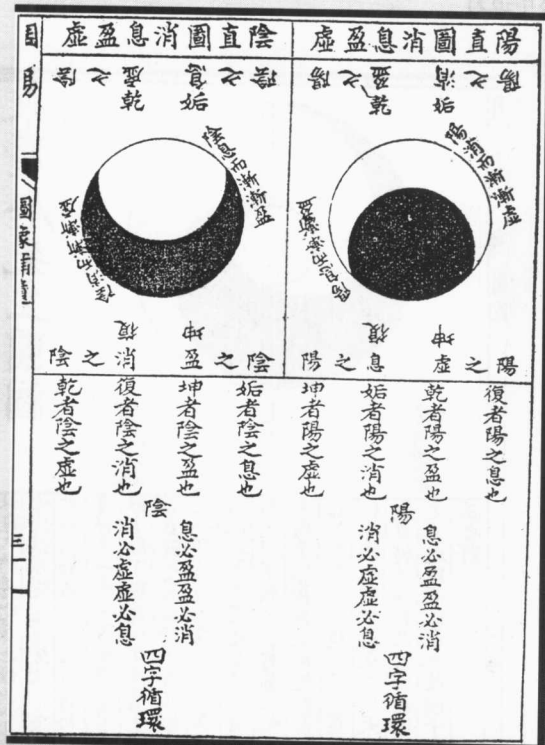 陽直圖消息盈虛
陽之消
姤
乾
陽之盈
陽消而漸漸虛
陽息而漸漸盈
坤
陽之虛
復
陽之息
復者陽之息也
乾者陽之盈也
姤者陽之消也
坤者陽之虛也
陽
息必盈盈必消
消必虛虛必息
四字循環
陰直圖消息盈虛
陰之息
姤
乾
陰之虛
陰息而漸漸盈
陰消而漸漸虛
坤
陰之盈
復
陰之消
姤者陰之息也
坤者陰之盈也
復者陰之消也
乾者陰之虛也
陰
息必盈盈必消
消必虛虛必息
四字循環
易
圖象
三一